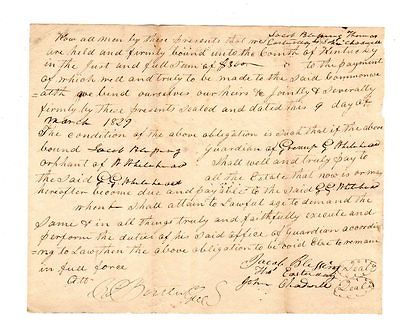 Now all men by these presents that we Jacob Blessing Thomas
Easterday & Jno Chadwell
are held and firmly bound unto the Comth of Kentucky
in the Just and full Sum of $300 to the payment
of which well and truly to be made to the Said Commonwe
alth we bend ourselves our Heirs & Jointly & Severally
firmly by these presents Sealed and dated this 9 day of
March 1829
The Condition of the above obligation is Such that if the above
bound Jacob Blessing Guardian of G Whitehead
orphant of W Whitehead Shall well and truly pay to
the Said G G Whitehead all the Estate that now is or may
hereafter become due and payable to the Said G G Whitehead
when Shall attain to Lawful age to demand the
Same & in all things truly and faithfully execute and
perform the duties of his Said office of Guardian accord
ing to Law then the above obligation to be void Else to remain
in full force
Att
Jacob Blessing
Thos Easterday Seal
John Chadwell Seal